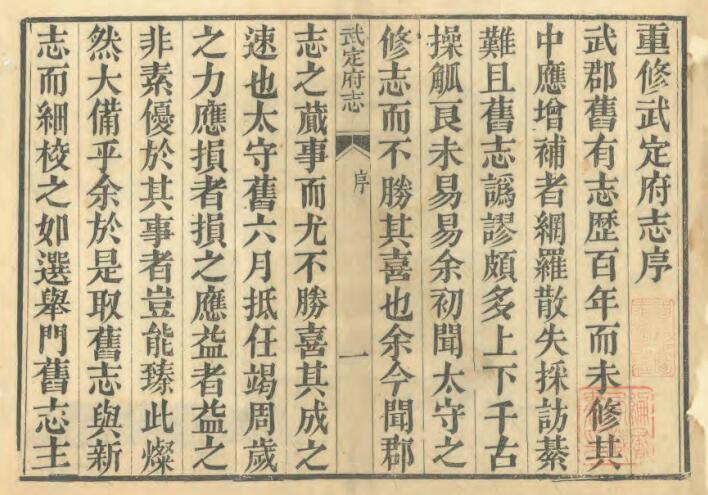 重修武定府志序
武郡舊有志歷百年而未修其
中應增補者網羅散失採訪綦
難且舊志譌謬頗多上下千古
操觚良未易易余初聞太守之
修志而不勝其喜也余今聞郡
武定府志
序
一
志之蕆事而尤不勝喜其成之
速也太守舊六月抵任竭周歲
之力應損者損之應益者益之
非素優於其事者豈能臻此燦
然大備乎余於是取舊志與新
志而細校之如選舉門舊志主